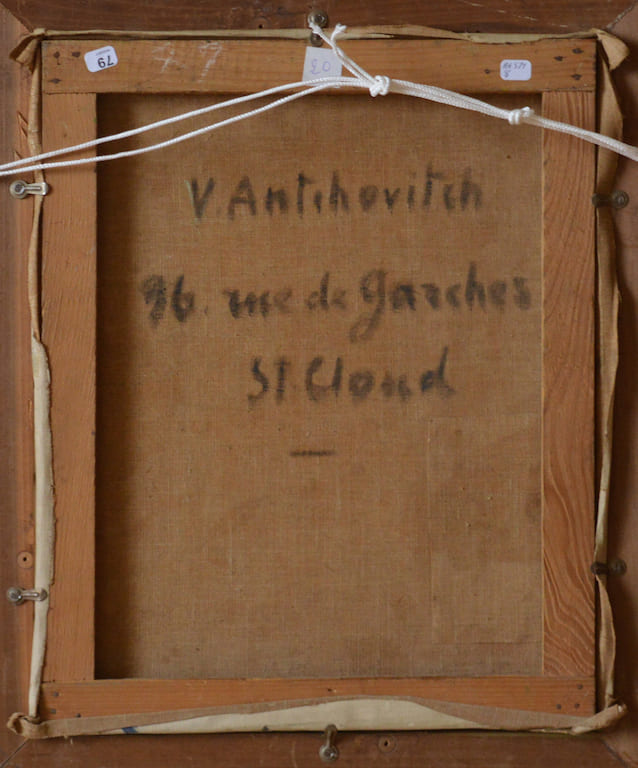 79
V. Antihovitch
96. rue de Garches
St. Cloud